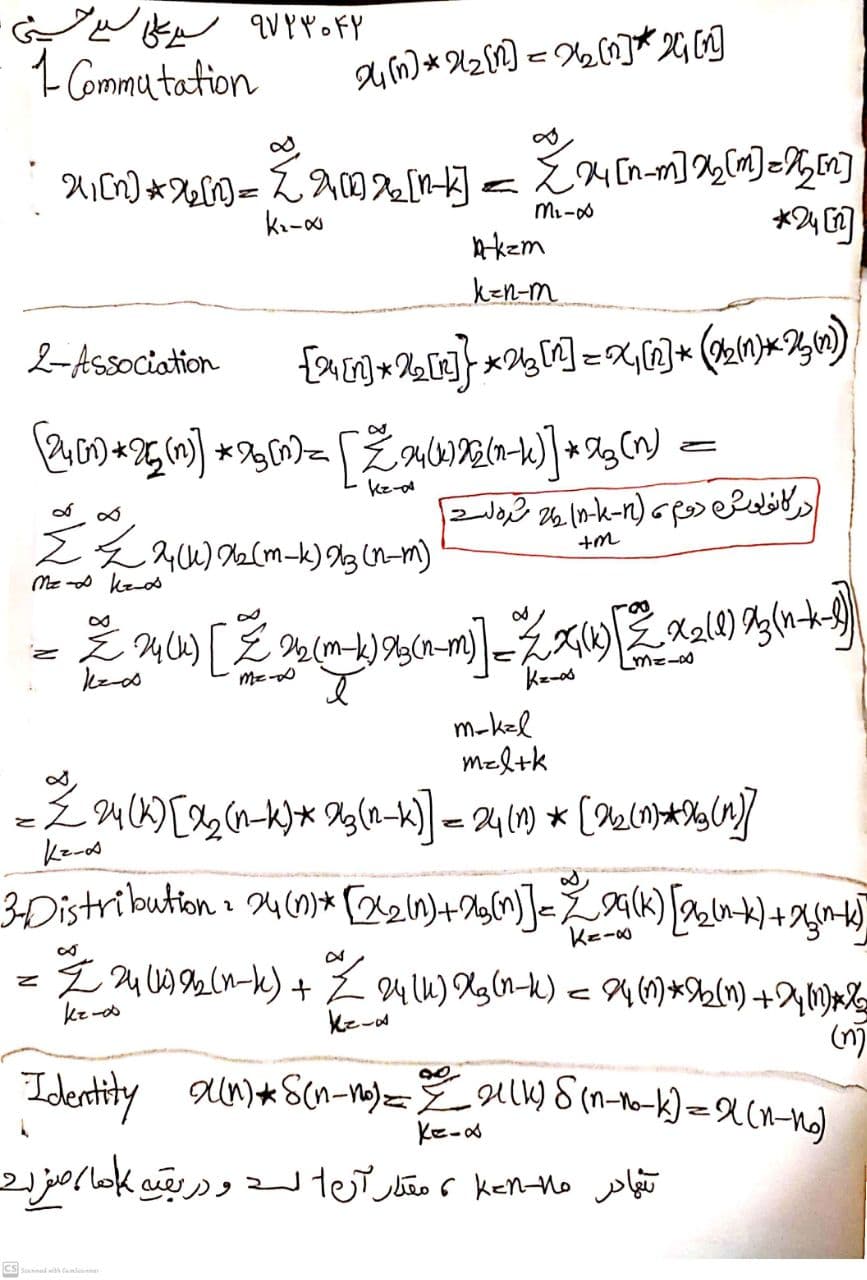 سید علی سید حسینی ۹۷۲۳۰۴۲
1-Commutation x₁[n]*x₂[n]=x₂[n]*x₁[n]
x₁[n]*x₂[n]=∑_{k=-∞}^{∞} x₁[k]x₂[n-k] = ∑_{m=-∞}^{∞} x₁[n-m]x₂[m]=x₂[n]
*x₁[n]
n-k=m
k=n-m
2-Association {x₁[n]*x₂[n]}*x₃[n]=x₁[n]*(x₂(n)*x₃(n))
[x₁(n)*x₂(n)]*x₃(n)=[∑_{k=-∞}^{∞} x₁(k)x₂(n-k)]*x₃(n) =
در کانولوشن دوم، x₂(n-k-n) است
+m
∑_{m=-∞}^{∞} ∑_{k=-∞}^{∞} x₁(k)x₂(m-k)x₃(n-m)
= ∑_{k=-∞}^{∞} x₁(k)[∑_{m=-∞}^{∞} x₂(m-k)x₃(n-m)]=∑_{k=-∞}^{∞} x₁(k)[∑_{m=-∞}^{∞} x₂(l)x₃(n-k-l)]
l
m-k=l
m=l+k
=∑_{k=-∞}^{∞} x₁(k)[x₂(n-k)*x₃(n-k)]=x₁(n)*[x₂(n)*x₃(n)]
3-Distribution: x₁(n)*[x₂(n)+x₃(n)]=∑_{k=-∞}^{∞} x₁(k)[x₂(n-k)+x₃(n-k)]
= ∑_{k=-∞}^{∞} x₁(k)x₂(n-k) + ∑_{k=-∞}^{∞} x₁(k)x₃(n-k) = x₁(n)*x₂(n)+x₁(n)*x₃
(n)
Identity x(n)*δ(n-n₀)=∑_{k=-∞}^{∞} x(k)δ(n-n₀-k)=x(n-n₀)
تنها در k=n-n₀، مقدار آن 1 است و در بقیه kها، صفر است
CS Scanned with CamScanner